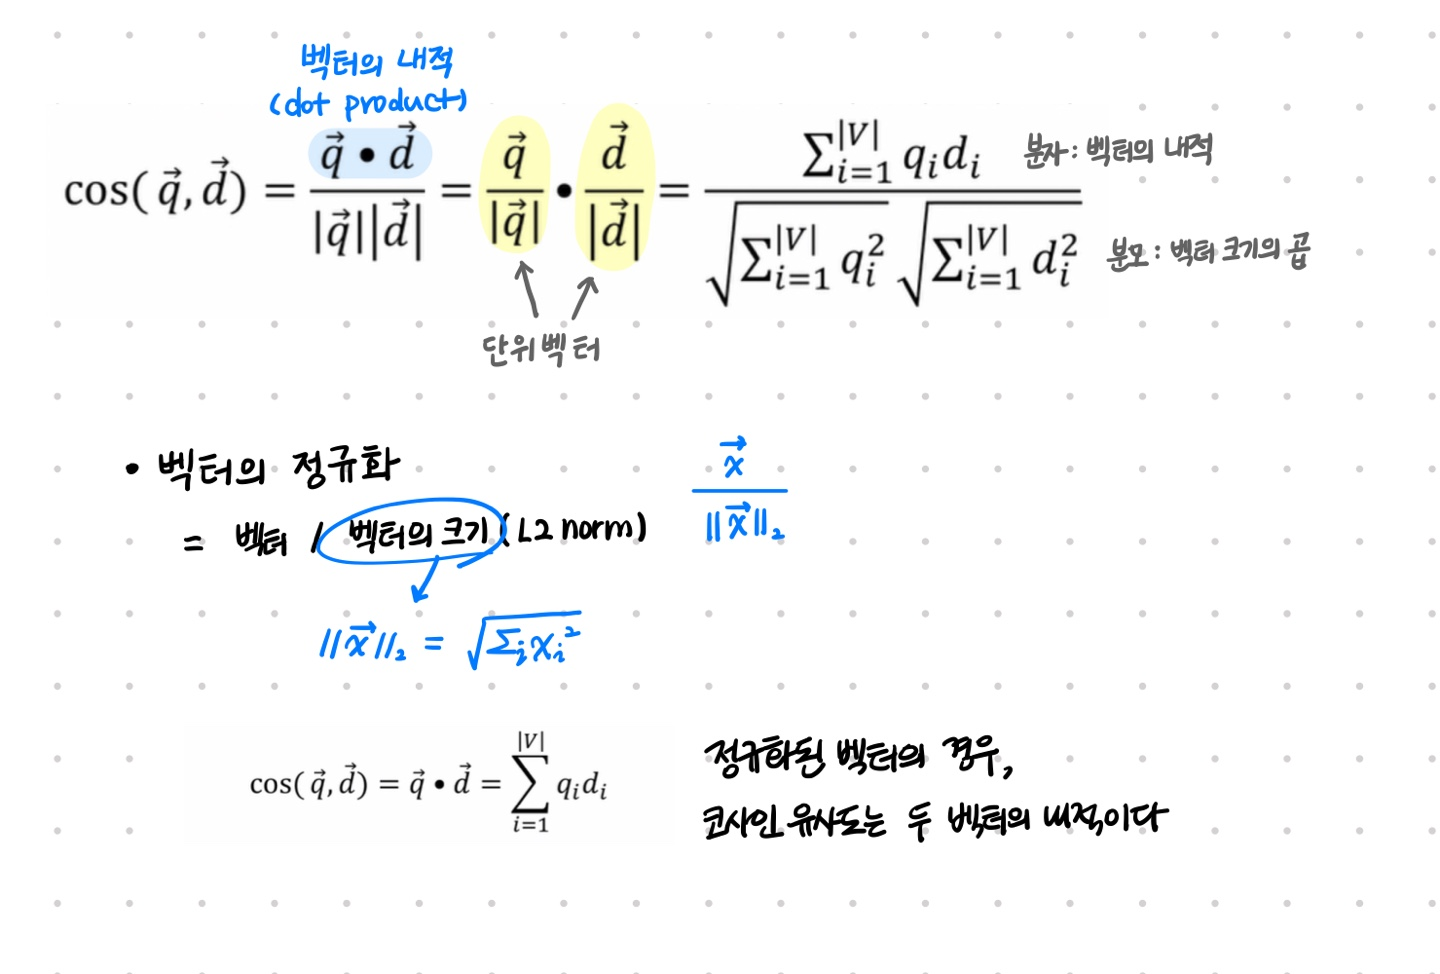 벡터의 내적
(dot product)
cos( q⃗, d⃗) = q⃗ • d⃗ / |q⃗||d⃗| = q⃗ / |q⃗| • d⃗ / |d⃗| = ∑_{i=1}^{|V|} q_i d_i / √(∑_{i=1}^{|V|} q_i^2) √(∑_{i=1}^{|V|} d_i^2)
분자 : 벡터의 내적
분모 : 벡터 크기의 곱
단위벡터
• 벡터의 정규화
= 벡터 / 벡터의 크기 (L2 norm)
x⃗ / ||x⃗||₂
||x⃗||₂ = √(Σ_i x_i^2)
cos( q⃗, d⃗) = q⃗ • d⃗ = ∑_{i=1}^{|V|} q_i d_i
정규화된 벡터의 경우,
코사인 유사도는 두 벡터의 내적이다